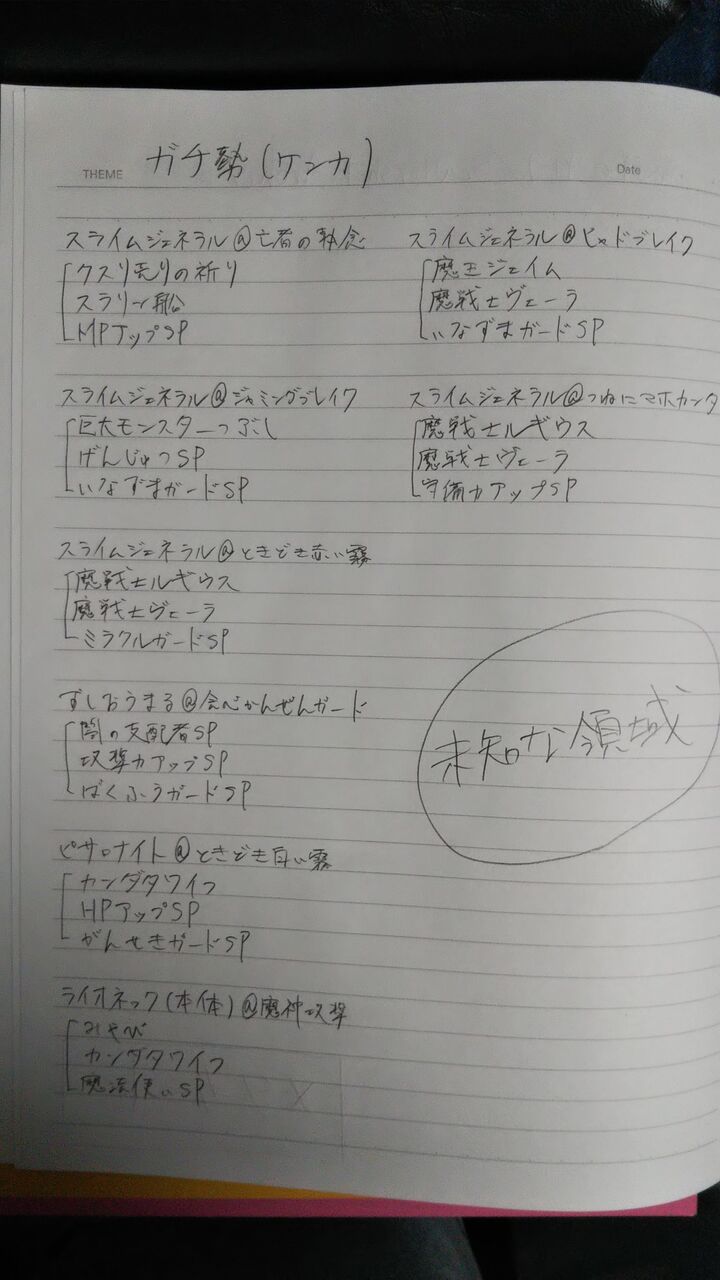 THEME ガチ勢(ケンカ)
Date
スライムジェネラル@亡者の執念
クスリ売りの祈り
スラリン船
MPアップSP
スライムジェネラル@ヒャドブレイク
魔王ジェイム
魔戦士ヴェーラ
いなずまガードSP
スライムジェネラル@ジャミングブレイク
巨大モンスターつぶし
げんじゅつSP
いなずまガードSP
スライムジェネラル@つねにマホカンタ
魔戦士ルギウス
魔戦士ヴェーラ
守備力アップSP
スライムジェネラル@ときどき赤い霧
魔戦士ルギウス
魔戦士ヴェーラ
ミラクルガードSP
ずしおうまる@会心かんぜんガード
闇の支配者SP
攻撃力アップSP
ばくふうガードSP
未知な領域
ピサロナイト@ときどき白い霧
カンダタワイフ
HPアップSP
がんせきガードSP
ライオネック(本体)@魔神攻撃
あそび
カンダタワイフ
魔法使いSP